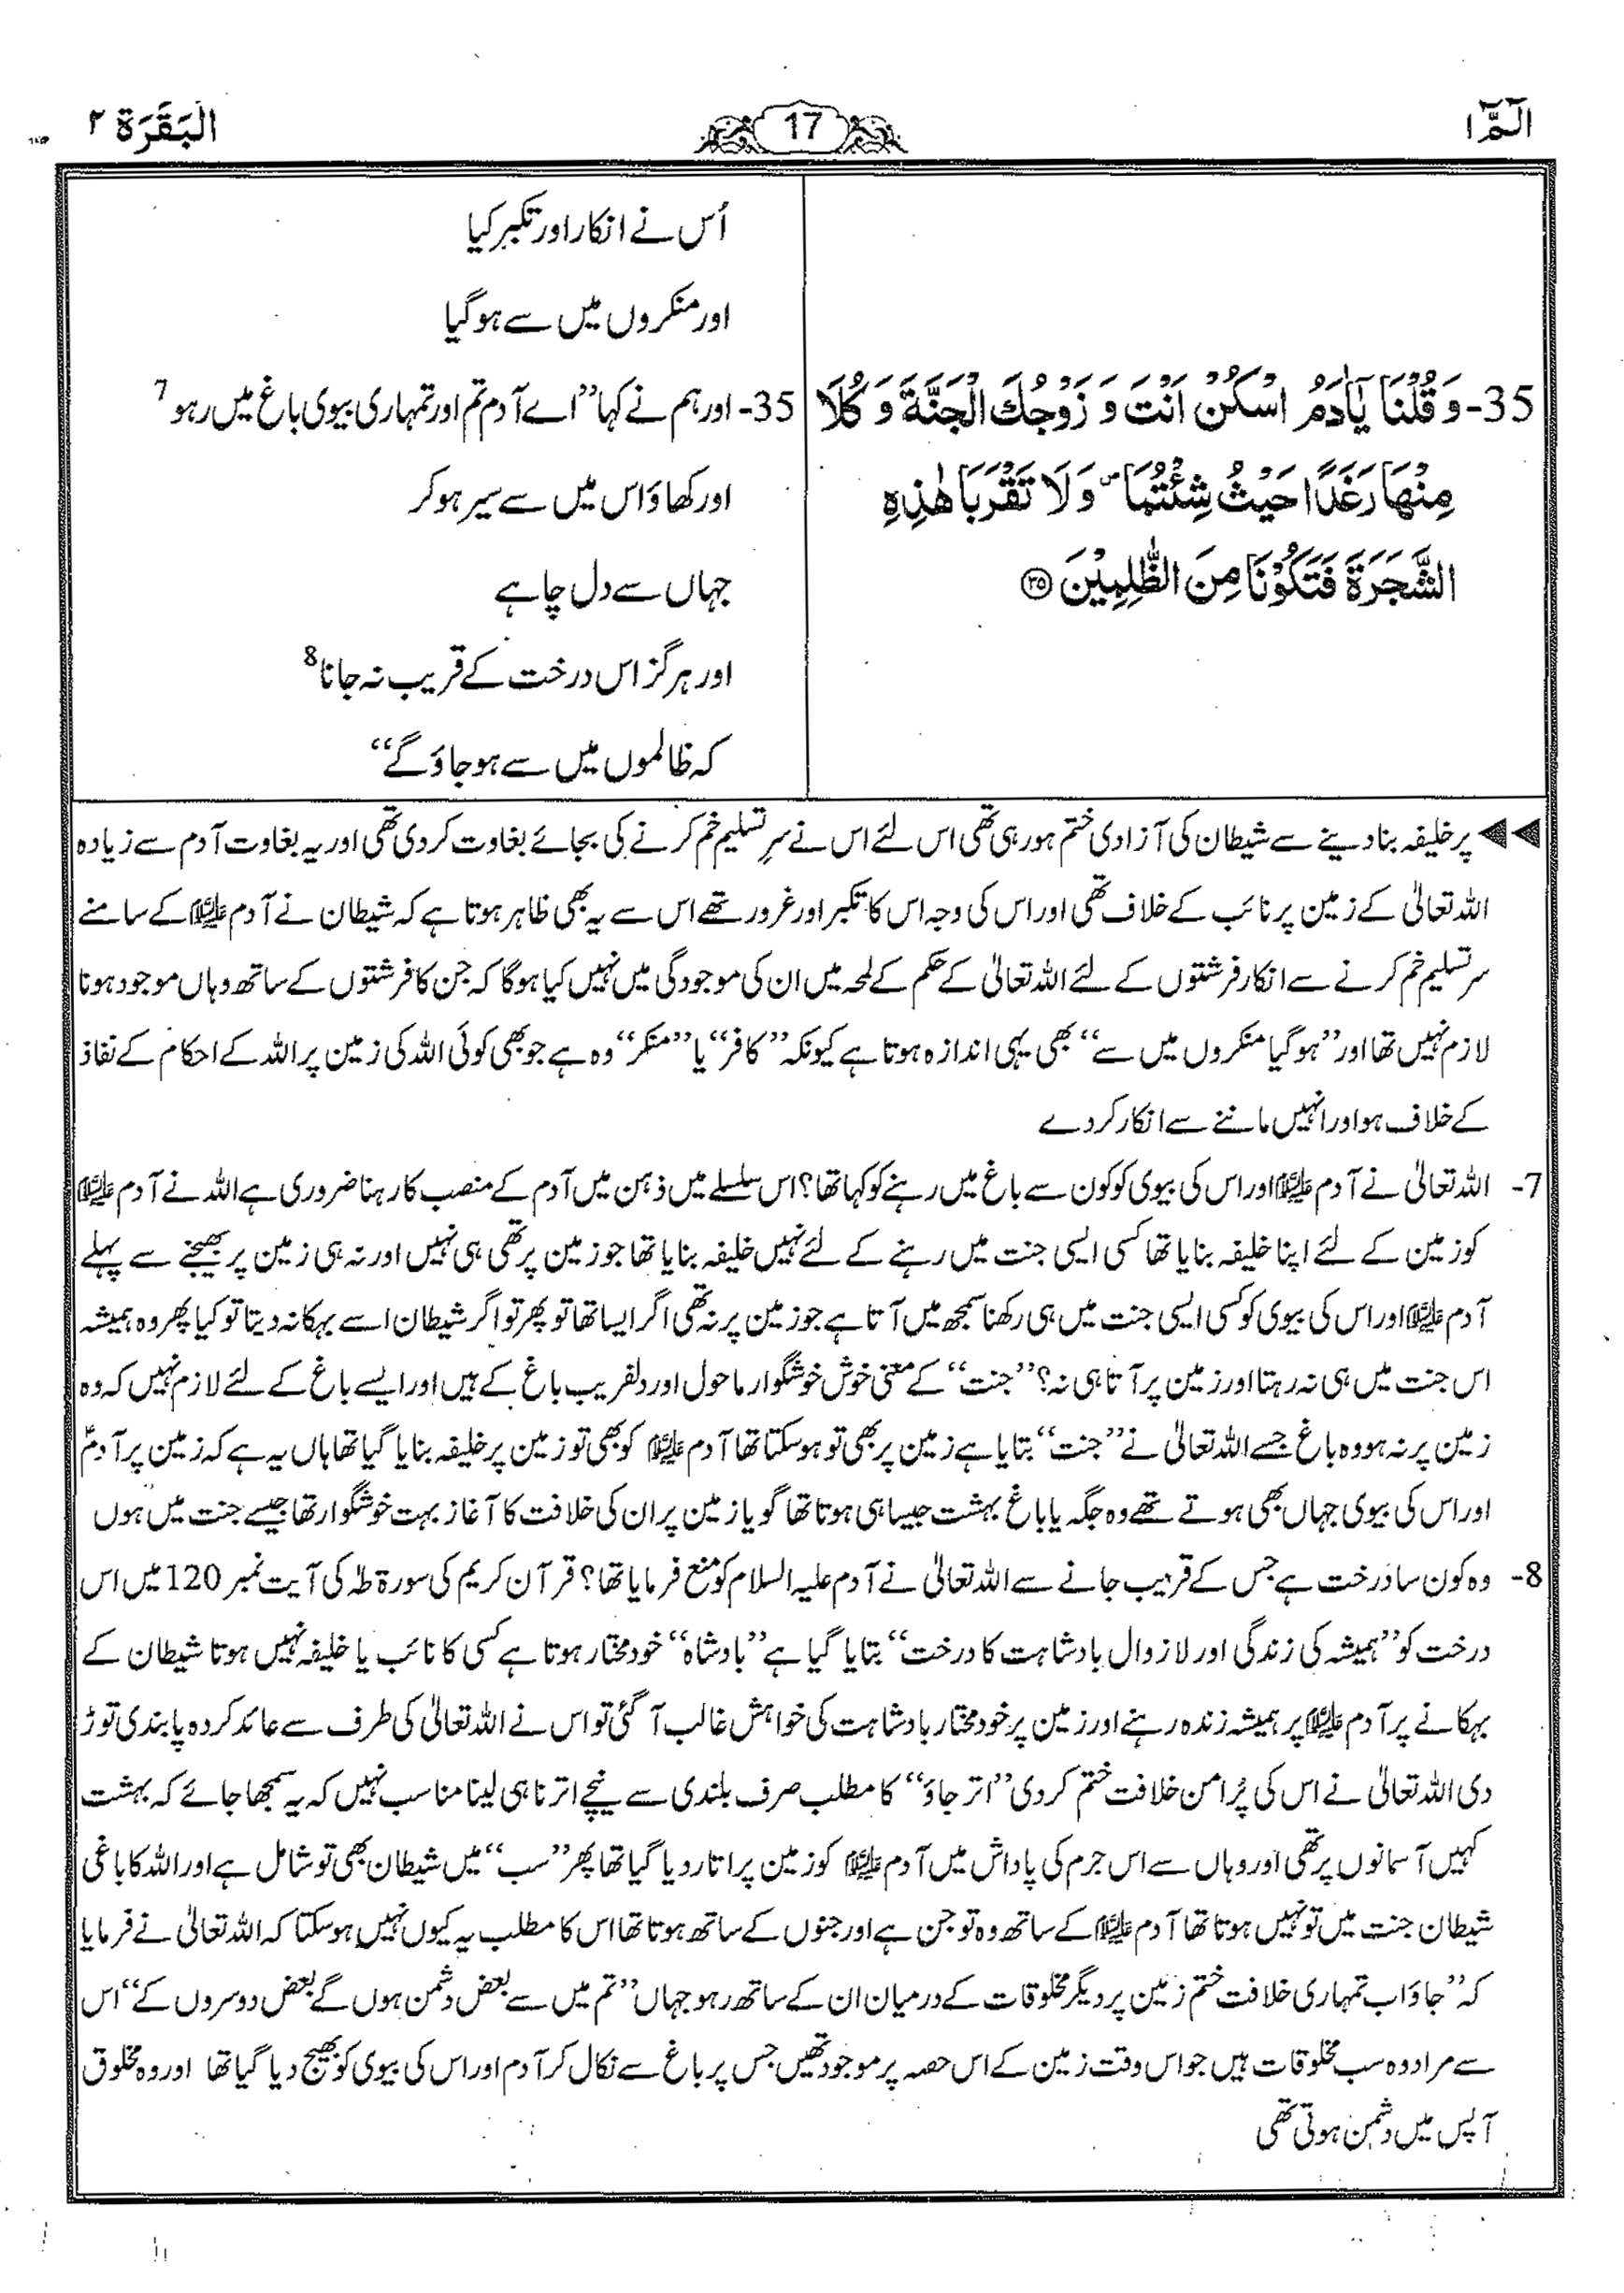 الٓمّٓ ۱
17
البَقَرَة ۲
35- وَ قُلْنَا يٰۤاٰدَمُ اسْكُنْ اَنْتَ وَ زَوْجُكَ الْجَنَّةَ وَ كُلَا
مِنْهَا رَغَدًا حَيْثُ شِئْتُمَا ۪ وَ لَا تَقْرَبَا هٰذِهِ
الشَّجَرَةَ فَتَكُوْنَا مِنَ الظّٰلِمِيْنَ ۝۳۵
اُس نے انکار اور تکبر کیا
اور منکروں میں سے ہو گیا
35- اور ہم نے کہا ”اے آدم تم اور تمہاری بیوی باغ میں رہو 7
اور کھاؤ اس میں سے سیر ہو کر
جہاں سے دل چاہے
اور ہرگز اس درخت کے قریب نہ جانا 8
کہ ظالموں میں سے ہو جاؤ گے“
◀◀ پر خلیفہ بنا دینے سے شیطان کی آزادی ختم ہو رہی تھی اس لئے اس نے سرِ تسلیم خم کرنے کی بجائے بغاوت کر دی تھی اور یہ بغاوت آدم سے زیادہ
اللہ تعالیٰ کے زمین پر نائب کے خلاف تھی اور اس کی وجہ اس کا تکبر اور غرور تھے اس سے یہ بھی ظاہر ہوتا ہے کہ شیطان نے آدم علیہ السلام کے سامنے
سر تسلیم خم کرنے سے انکار فرشتوں کے لئے اللہ تعالیٰ کے حکم کے لمحہ میں ان کی موجودگی میں نہیں کیا ہوگا کہ جن کا فرشتوں کے ساتھ وہاں موجود ہونا
لازم نہیں تھا اور ”ہو گیا منکروں میں سے“ بھی یہی اندازہ ہوتا ہے کیونکہ ”کافر“ یا ”منکر“ وہ ہے جو بھی کوئی اللہ کی زمین پر اللہ کے احکام کے نفاذ
کے خلاف ہو اور انہیں ماننے سے انکار کر دے
7- اللہ تعالیٰ نے آدم علیہ السلام اور اس کی بیوی کو کون سے باغ میں رہنے کو کہا تھا؟ اس سلسلے میں ذہن میں آدم کے منصب کا رہنا ضروری ہے اللہ نے آدم علیہ السلام
کو زمین کے لئے اپنا خلیفہ بنایا تھا کسی ایسی جنت میں رہنے کے لئے نہیں خلیفہ بنایا تھا جو زمین پر تھی ہی نہیں اور نہ ہی زمین پر بھیجنے سے پہلے
آدم علیہ السلام اور اس کی بیوی کو کسی ایسی جنت میں ہی رکھنا سمجھ میں آتا ہے جو زمین پر نہ تھی اگر ایسا تھا تو پھر تو اگر شیطان اسے بہکا نہ دیتا تو کیا پھر وہ ہمیشہ
اس جنت میں ہی نہ رہتا اور زمین پر آتا ہی نہ؟ ”جنت“ کے معنی خوش خوشگوار ماحول اور دلفریب باغ کے ہیں اور ایسے باغ کے لئے لازم نہیں کہ وہ
زمین پر نہ ہو وہ باغ جسے اللہ تعالیٰ نے ”جنت“ بتایا ہے زمین پر بھی تو ہو سکتا تھا آدم علیہ السلام کو بھی تو زمین پر خلیفہ بنایا گیا تھا ہاں یہ ہے کہ زمین پر آدمؑ
اور اس کی بیوی جہاں بھی ہوتے تھے وہ جگہ یا باغ بہشت جیسا ہی ہوتا تھا گویا زمین پر ان کی خلافت کا آغاز بہت خوشگوار تھا جیسے جنت میں ہوں
8- وہ کون سا درخت ہے جس کے قریب جانے سے اللہ تعالیٰ نے آدم علیہ السلام کو منع فرمایا تھا؟ قرآن کریم کی سورۃ طہٰ کی آیت نمبر 120 میں اس
درخت کو ”ہمیشہ کی زندگی اور لازوال بادشاہت کا درخت“ بتایا گیا ہے ”بادشاہ“ خود مختار ہوتا ہے کسی کا نائب یا خلیفہ نہیں ہوتا شیطان کے
بہکانے پر آدم علیہ السلام پر ہمیشہ زندہ رہنے اور زمین پر خود مختار بادشاہت کی خواہش غالب آ گئی تو اس نے اللہ تعالیٰ کی طرف سے عائد کردہ پابندی توڑ
دی اللہ تعالیٰ نے اس کی پُر امن خلافت ختم کر دی ”اتر جاؤ“ کا مطلب صرف بلندی سے نیچے اترنا ہی لینا مناسب نہیں کہ یہ سمجھا جائے کہ بہشت
کہیں آسمانوں پر تھی اور وہاں سے اس جرم کی پاداش میں آدم علیہ السلام کو زمین پر اتار دیا گیا تھا پھر ”سب“ میں شیطان بھی تو شامل ہے اور اللہ کا باغی
شیطان جنت میں تو نہیں ہوتا تھا آدم علیہ السلام کے ساتھ وہ تو جن ہے اور جنوں کے ساتھ ہوتا تھا اس کا مطلب یہ کیوں نہیں ہو سکتا کہ اللہ تعالیٰ نے فرمایا
کہ ”جاؤ اب تمہاری خلافت ختم زمین پر دیگر مخلوقات کے درمیان ان کے ساتھ رہو جہاں ”تم میں سے بعض دشمن ہوں گے بعض دوسروں کے“ اس
سے مراد وہ سب مخلوقات ہیں جو اس وقت زمین کے اس حصہ پر موجود تھیں جس پر باغ سے نکال کر آدم اور اس کی بیوی کو بھیج دیا گیا تھا اور وہ مخلوق
آپس میں دشمن ہوتی تھی